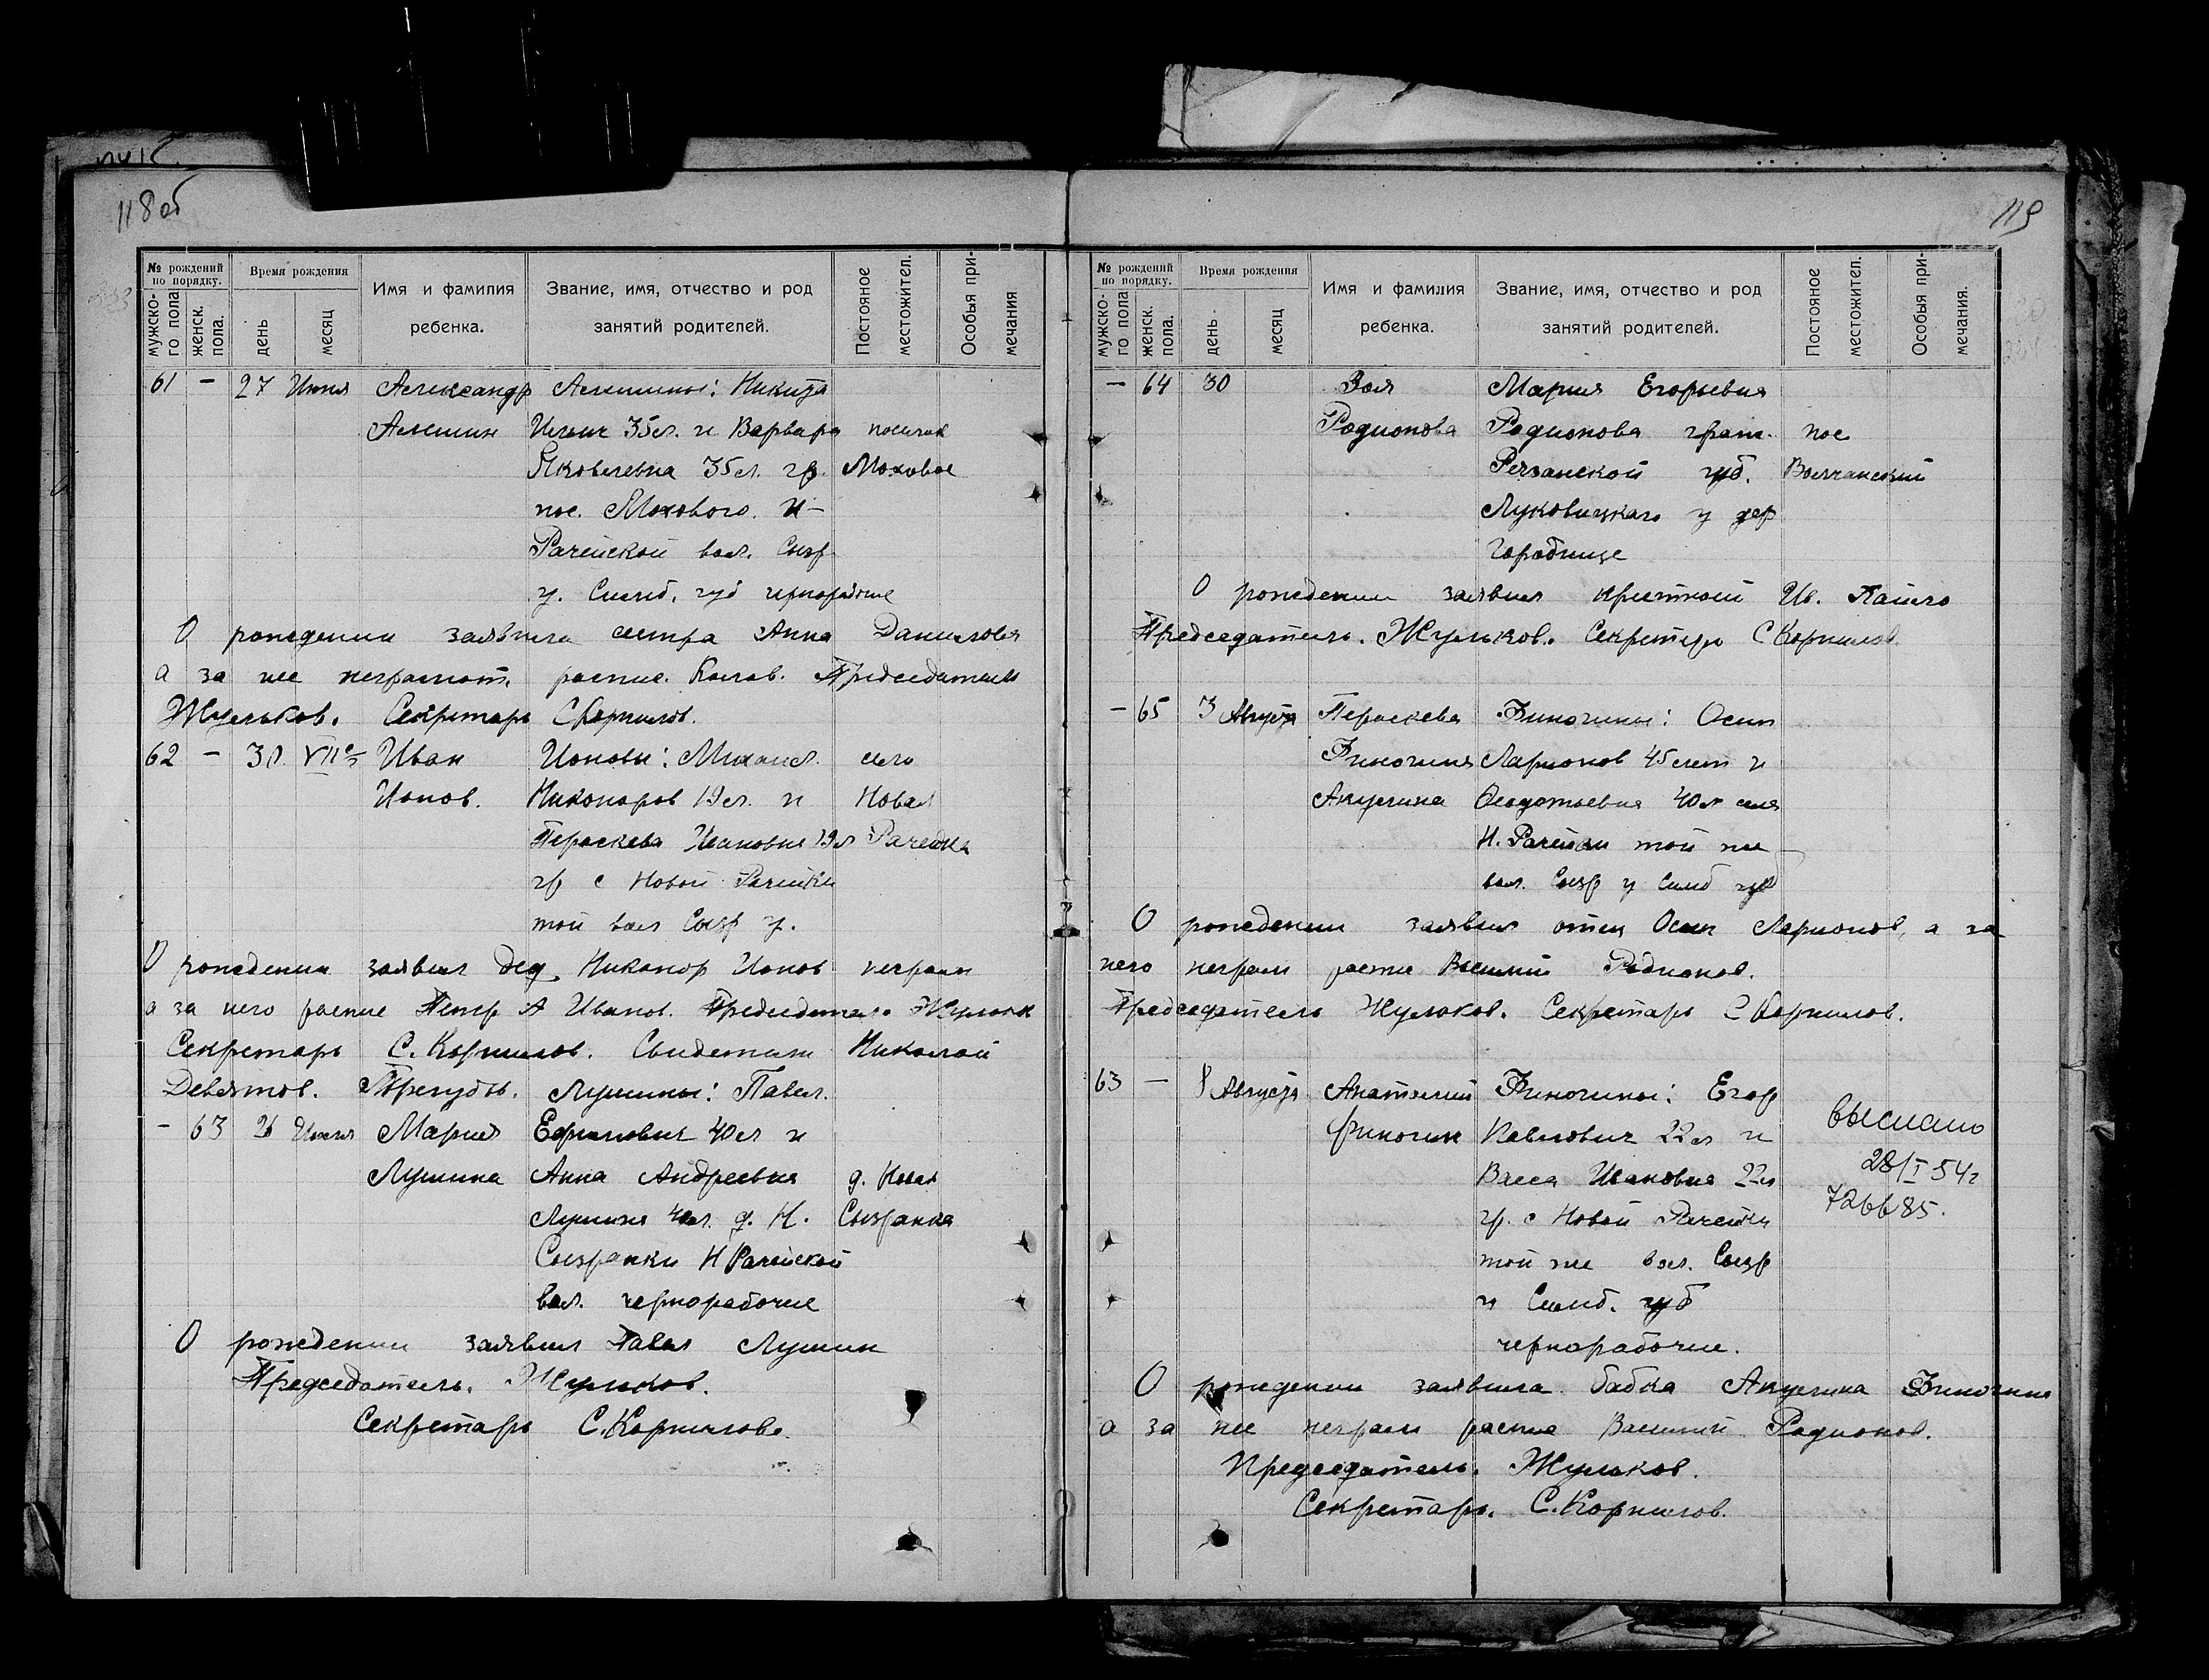 118 об
№ рождений по порядку.
Время рождения
Имя и фамилия ребенка.
Звание, имя, отчество и род занятий родителей.
Постояное местожител.
Особыя примечания
мужского пола
женск. пола.
день
месяц
61 — 27 Июня Александр Алешины: Никита
Алешин Ильич 35 л. и Варвара поселок
Яковлевна 35 л. гр. Моховое
пос. Мохового Н-
Рачейской вол. Сызр
у. Симб. губ чернорабочие
О рождении заявила сестра Анна Данилова
а за нее неграмот. распис. Председатель
Жульков. Секретарь С Корнилов.
62 — 30 VII Иван Ионовы: Михаил село
Ионов. Никоноров 19 л. и Новая
Пераскева Ивановна 19 л Рачейка
гр с Новой Рачейки
той вол Сызр у.
О рождении заявил дед Никанор Ионов неграм
а за него распис Петр А Иванов. Председатель Жульков
Секретарь С. Корнилов. Свидетели Николай
Девятов. Трегубов. Лушины: Павел
— 63 26 Июля Мария Ефимович 40 л и
Лушина Анна Андреевна д. Новая
Лушина 40 л. д. Н. Сызранка
Сызранки Н Рачейской
вол. чернорабочие
О рождении заявил Павел Лушин
Председатель. Жульков.
Секретарь С. Корнилов.
119
№ рождений по порядку.
Время рождения
Имя и фамилия ребенка.
Звание, имя, отчество и род занятий родителей.
Постояное местожител.
Особыя примечания.
мужского пола
женск. пола.
день
месяц
— 64 30 Зоя Мария Егорьевна
Родионова Родионова граж. пос
Резанской губ. Волчанский
Луковицкаго у дер
Городище
О рождении заявил крестный Ив.
Председатель. Жульков. Секретарь С Корнилов.
— 65 3 Августа Пераскева Финогины: Осип
Финогина Ларионов 45 лет и
Акулина Феодотьевна 40 л села
Н. Рачейки той же
вол. Сызр у Симб губ
О рождении заявил отец Осип Ларионов, а за
него неграм распис Василий Родионов.
Председатель Жульков. Секретарь С Корнилов.
63 — 8 Августа Анатолий Финогины: Егор
Финогин Павлович 22 л и
Васса Ивановна 22 л
гр. с Новой Рачейки
той же вол. Сызр
и Симб. губ
чернорабочие.
выслано
28/I 54 г
726685.
О рождении заявила бабка Акулина Финогина
а за нее неграм распис Василий Родионов.
Председатель. Жульков.
Секретарь. С. Корнилов.